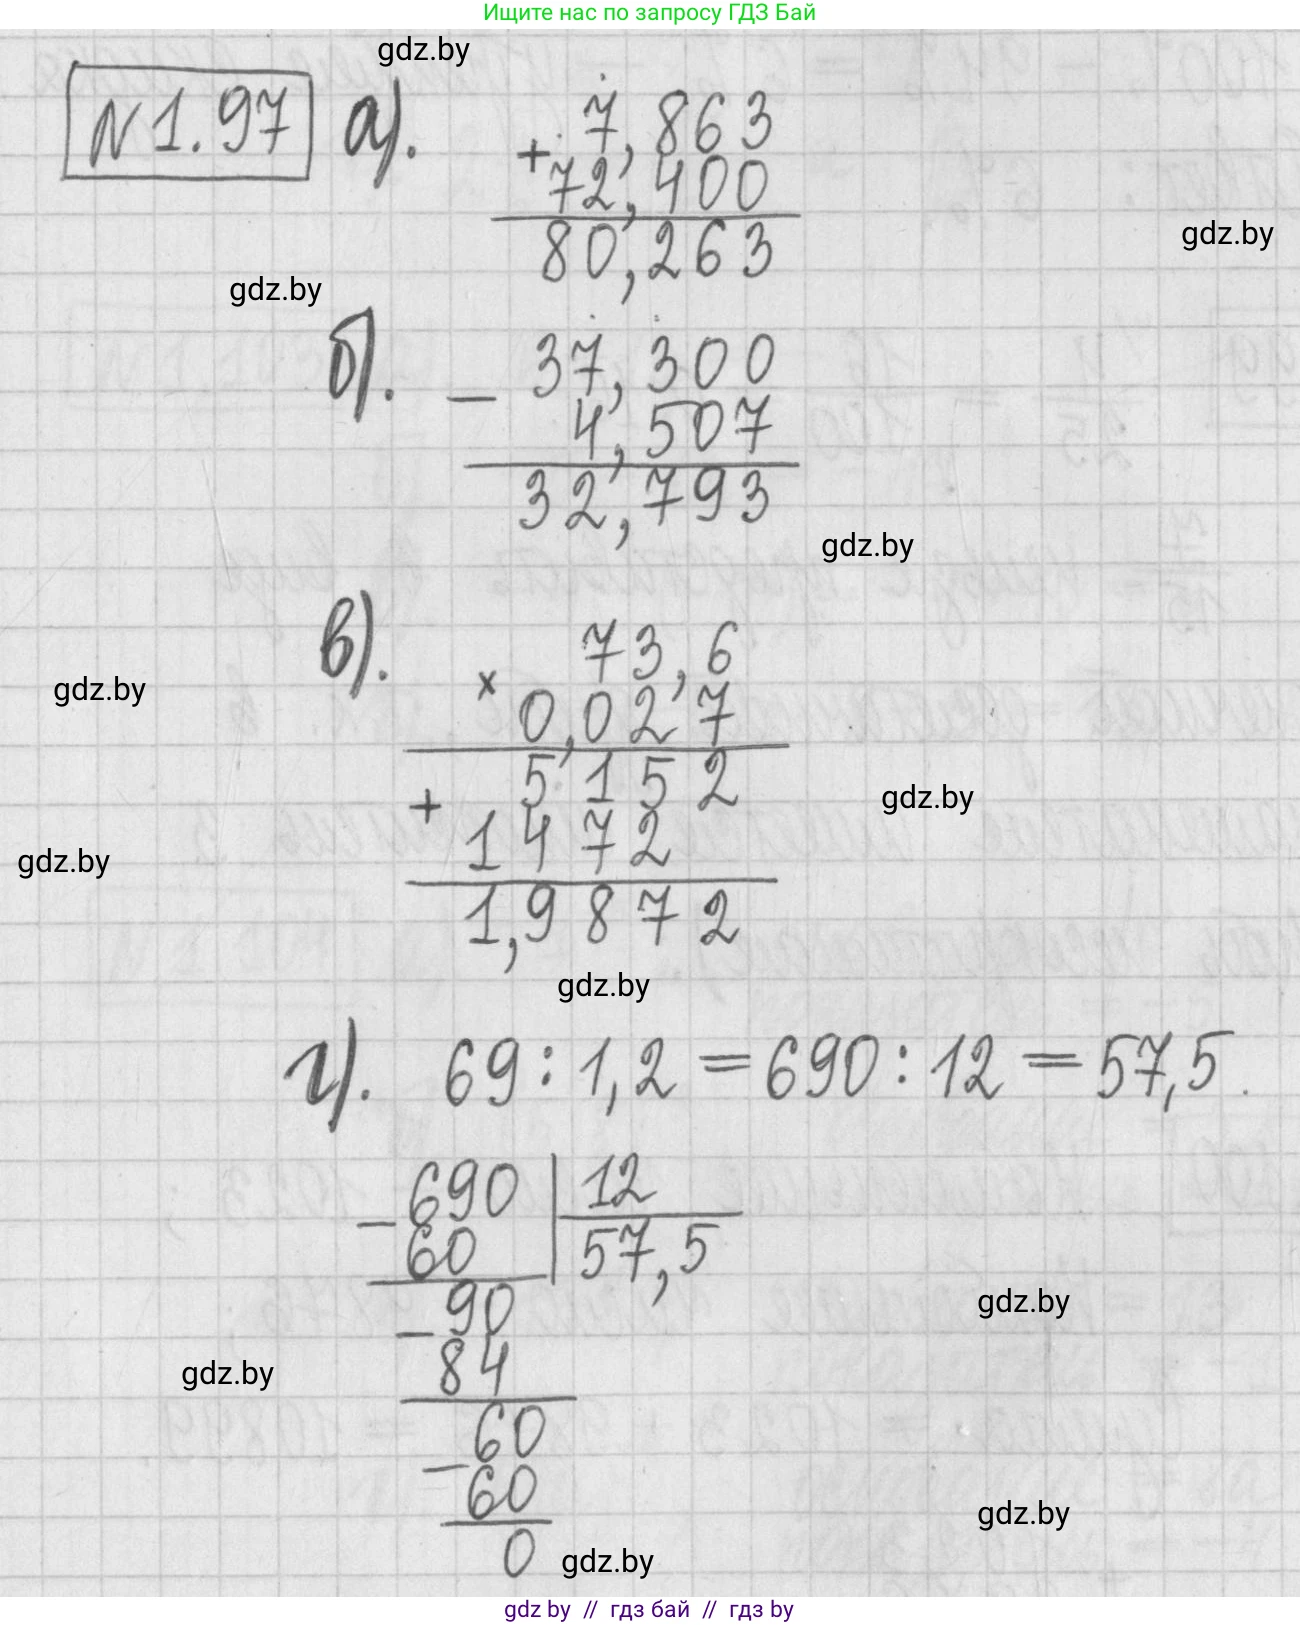 Ищите нас по запросу ГДЗ Бай
gdz.by
№1.97 а). 7,863
+
72,400
80,263
gdz.by
gdz.by
б). 37,300
−
4,507
32,793
gdz.by
в). 73,6
×
0,027
gdz.by
5152
+
1472
gdz.by
gdz.by
1,9872
gdz.by
г). 69 : 1,2 = 690 : 12 = 57,5.
−690 | 12
60 57,5
−90
gdz.by
84
gdz.by
−60
60
gdz.by
0
gdz.by
gdz by // гдз бай // гдз by